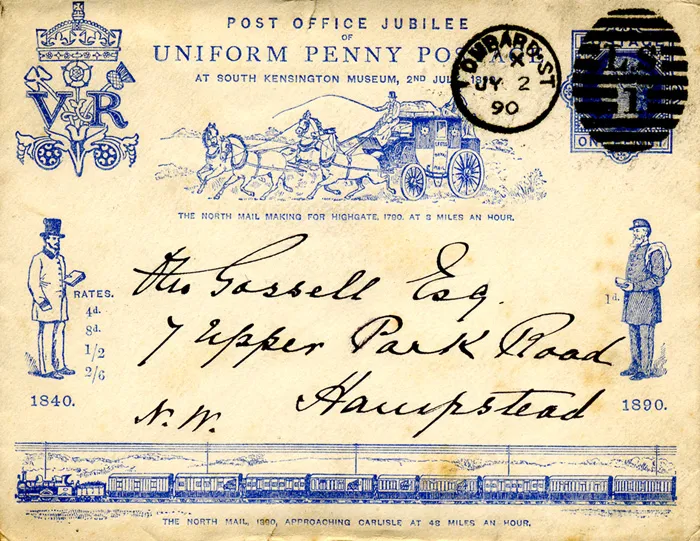 POST OFFICE JUBILEE
OF
UNIFORM PENNY POSTAGE
AT SOUTH KENSINGTON MUSEUM, 2ND JULY 1890
LOMBARD ST
X
JY 2
90
ONE PENNY
V R
THE NORTH MAIL MAKING FOR HIGHGATE, 1790, AT 8 MILES AN HOUR.
RATES.
4d.
8d.
1/2
2/6
1840.
1d.
1890.
Gossell Esq.
7 Upper Park Road
Hampstead
N.W.
THE NORTH MAIL, 1890, APPROACHING CARLISLE AT 48 MILES AN HOUR.